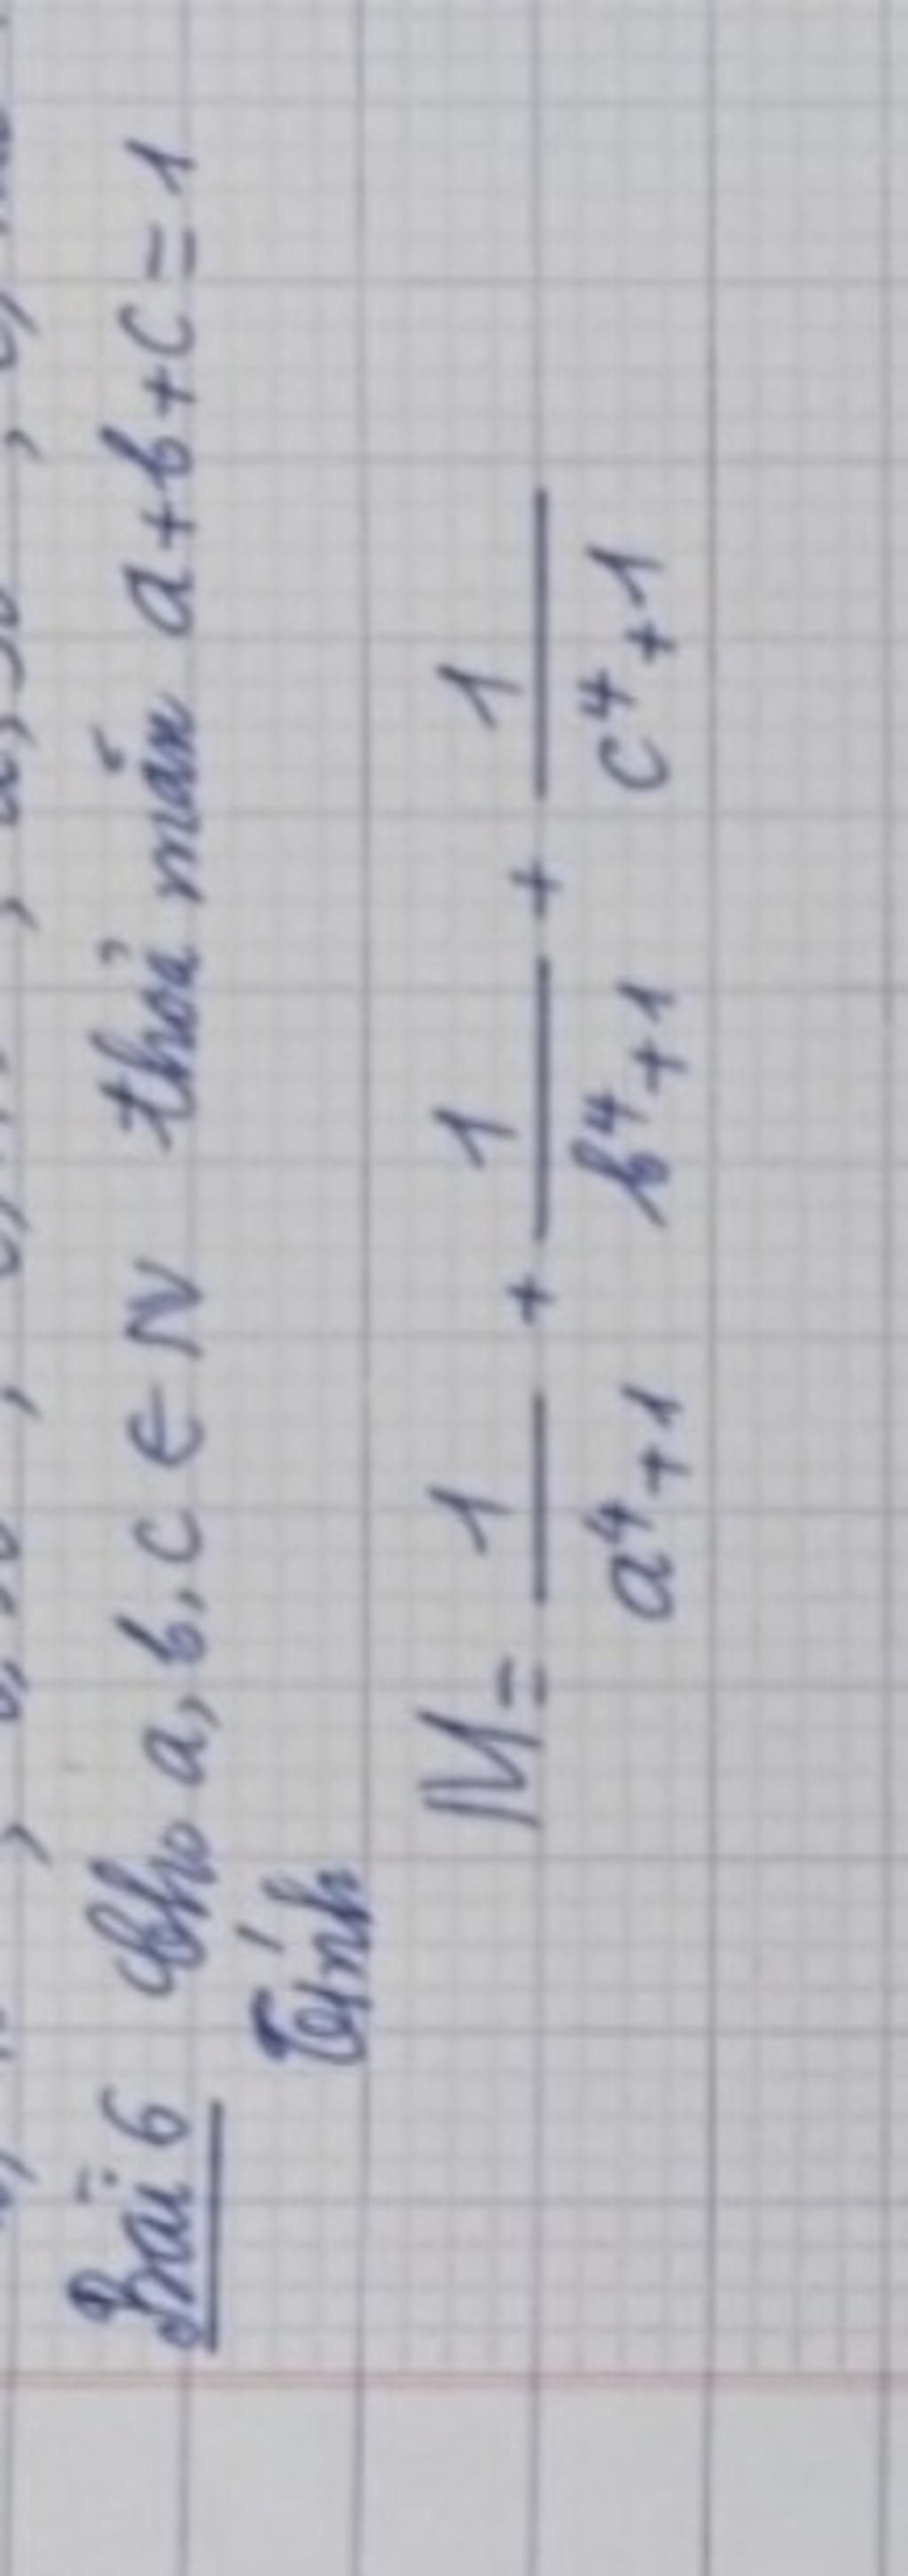 Bài 6 Cho a, b, c ∈ N thoả mãn a+b+c=1
Tính
M = 1/(a⁴+1) + 1/(b⁴+1) + 1/(c⁴+1)